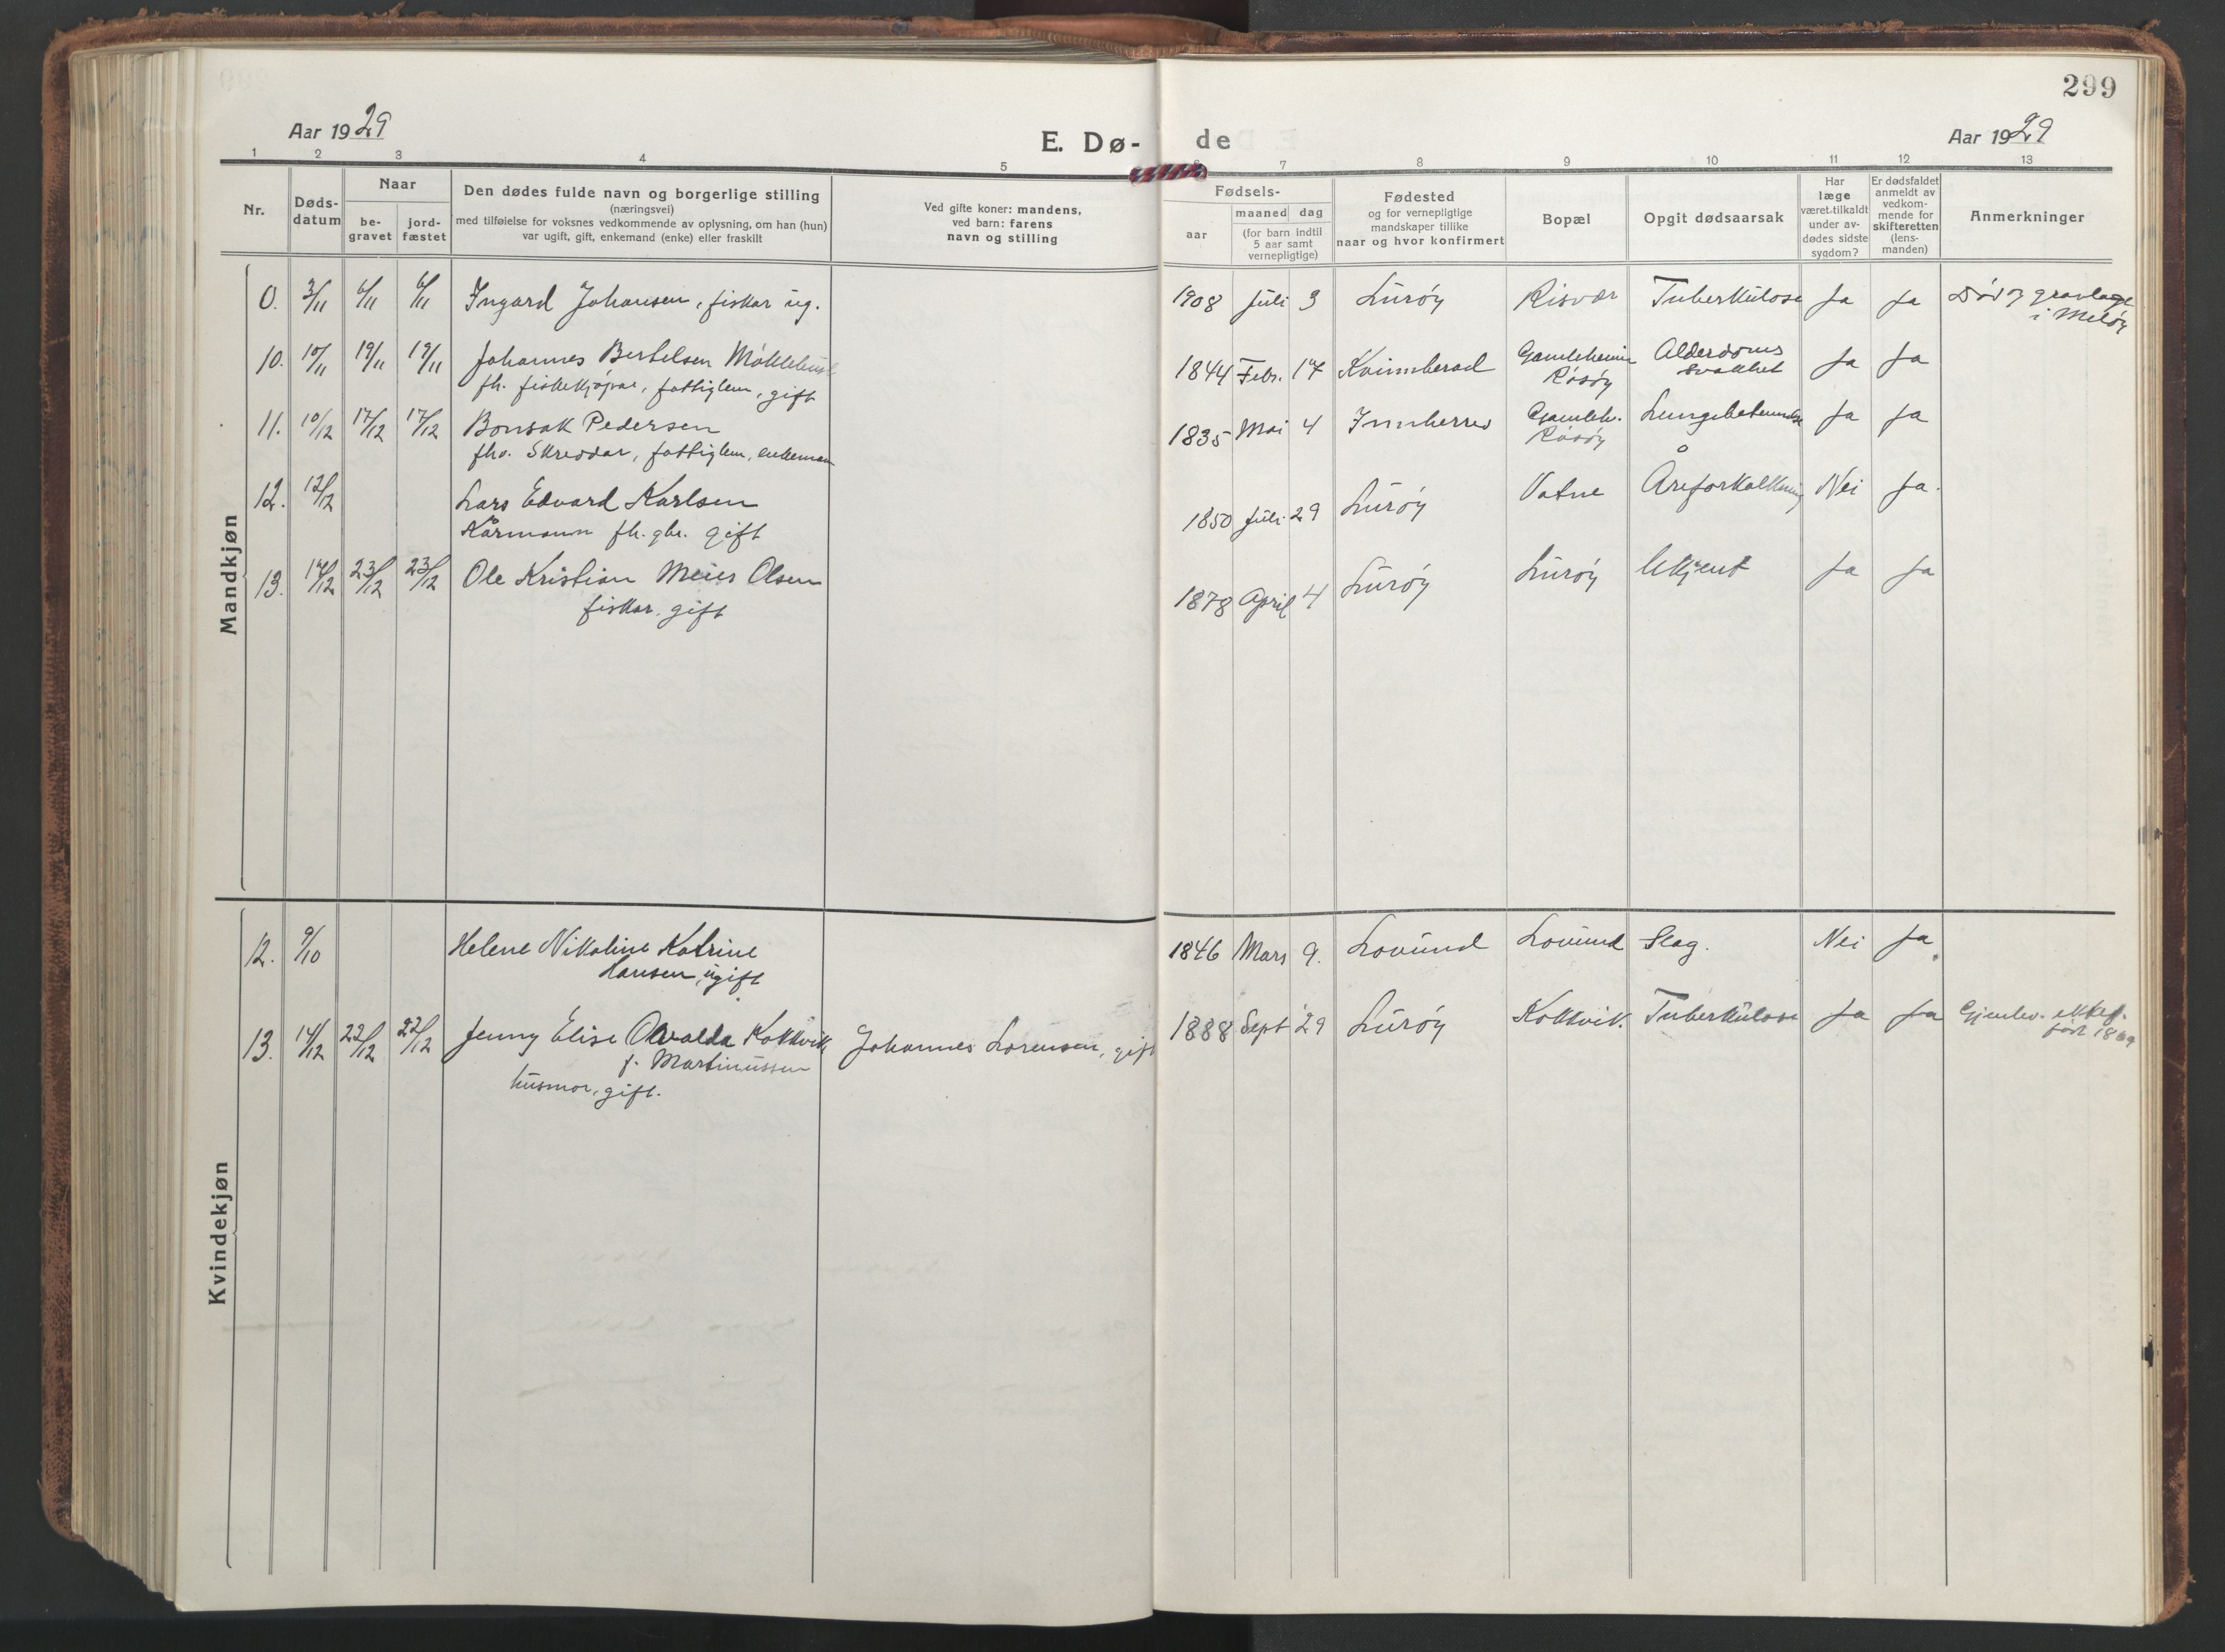 299
Aar 1929
E. Dø-
de
Aar 1929
1 2 3 4 5 6 7 8 9 10 11 12 13
Nr.
Døds-
datum
Naar
be-
gravet
jord-
fæstet
Den dødes fulde navn og borgerlige stilling
(næringsvei)
med tilføielse for voksnes vedkommende av oplysning, om han (hun)
var ugift, gift, enkemand (enke) eller fraskilt
Ved gifte koner: mandens,
ved barn: farens
navn og stilling
Fødsels-
aar
maaned dag
(for barn indtil
5 aar samt
vernepligtige)
Fødested
og for vernepligtige
mandskaper tillike
naar og hvor konfirmert
Bopæl
Opgit dødsaarsak
Har
læge
været tilkaldt
under av-
dødes sidste
sygdom?
Er dødsfaldet
anmeldt av
vedkom-
mende for
skifteretten
(lens-
manden)
Anmerkninger
Mandkjøn
0. 3/11 6/11 6/11 Ingard Johansen, fiskar ug. 1908 Juli 3 Lurøy Risvær Tuberkulose Ja Ja Död og gravlagt
i Meløy
10. 10/11 19/11 19/11 Johannes Bertelsen Möklebust 1844 Febr. 17 Kvinnherad Gamleheim Alderdoms Ja Ja
fh. fiskekjöpar, fattiglem, gift Råsöy svakhet
11. 10/12 17/12 17/12 Bonsak Pedersen 1835 Mai 4 Innherred Gamleh. Lungebetennelse Ja Ja
fhv. Skreddar, fattiglem, enkemann Råsöy
12. 12/12 Lars Edvard Karlsen 1850 Juli 29 Lurøy Vatne Åreforkalkning Nei Ja.
Kårmann fh. gbr. gift
13. 14/12 23/12 23/12 Ole Kristian Meier Olsen 1878 April 4 Lurøy Lurøy Ukjent Ja Ja
fiskar, gift
Kvindekjøn
12. 9/10 Helene Nikoline Katrine 1846 Mars 9. Lovund Lovund Slag. Nei Ja.
Hansen, ugift
13. 14/12 22/12 22/12 Jenny Elise Osvalda Kokkvik Johannes Lorensen, gift 1888 Sept 29 Lurøy Kokkvik. Tuberkulose Ja Ja Gjenlev. ektef.
f. Martinussen født 18
husmor, gift.